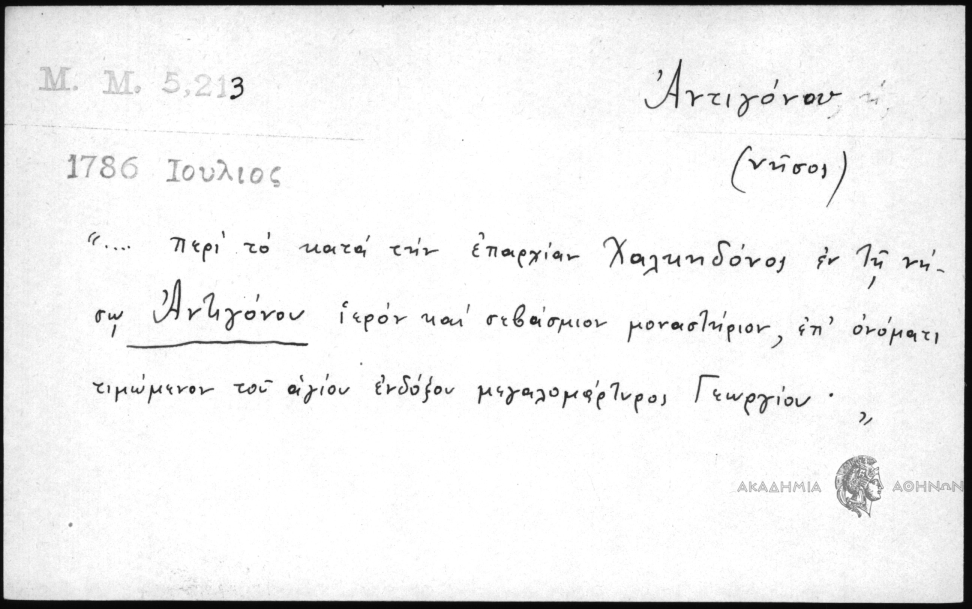 Μ. Μ. 5,213
Ἀντιγόνου, ἡ,
(νῆσος)
1786 Ιουλιος
“.... περί τό κατά τήν ἐπαρχίαν Χαλκηδόνος ἐν τῇ νή-
σῳ Ἀντιγόνου ἱερόν καί σεβάσμιον μοναστήριον, ἐπ’ ὀνόματι
τιμώμενον τοῦ ἁγίου ἐνδόξου μεγαλομάρτυρος Γεωργίου· „
ΑΚΑΔΗΜΙΑ ΑΘΗΝΩΝ